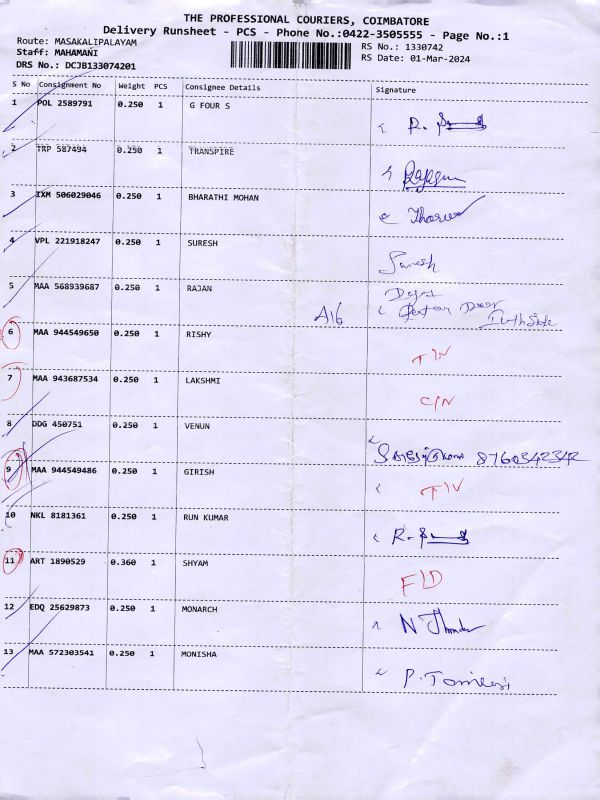 THE PROFESSIONAL COURIERS, COIMBATORE
Delivery Runsheet - PCS - Phone No.:0422-3505555 - Page No.:1
Route: MASAKALIPALAYAM
RS No.: 1330742
Staff: MAHAMANI
RS Date: 01-Mar-2024
DRS No.: DCJB133074201
S No Consignment No Weight PCS Consignee Details Signature
1 POL 2589791 0.250 1 G FOUR S
2 TRP 587494 0.250 1 TRANSPIRE
3 IXM 506029046 0.250 1 BHARATHI MOHAN
4 VPL 221918247 0.250 1 SURESH Suresh
5 MAA 568939687 0.250 1 RAJAN
A16
6 MAA 944549650 0.250 1 RISHY
7 MAA 943687534 0.250 1 LAKSHMI C/N
8 DDG 450751 0.250 1 VENUN
8760342342
9 MAA 944549486 0.250 1 GIRISH
10 NKL 8181361 0.250 1 RUN KUMAR
11 ART 1890529 0.360 1 SHYAM F/D
12 EDQ 25629873 0.250 1 MONARCH
13 MAA 572303541 0.250 1 MONISHA